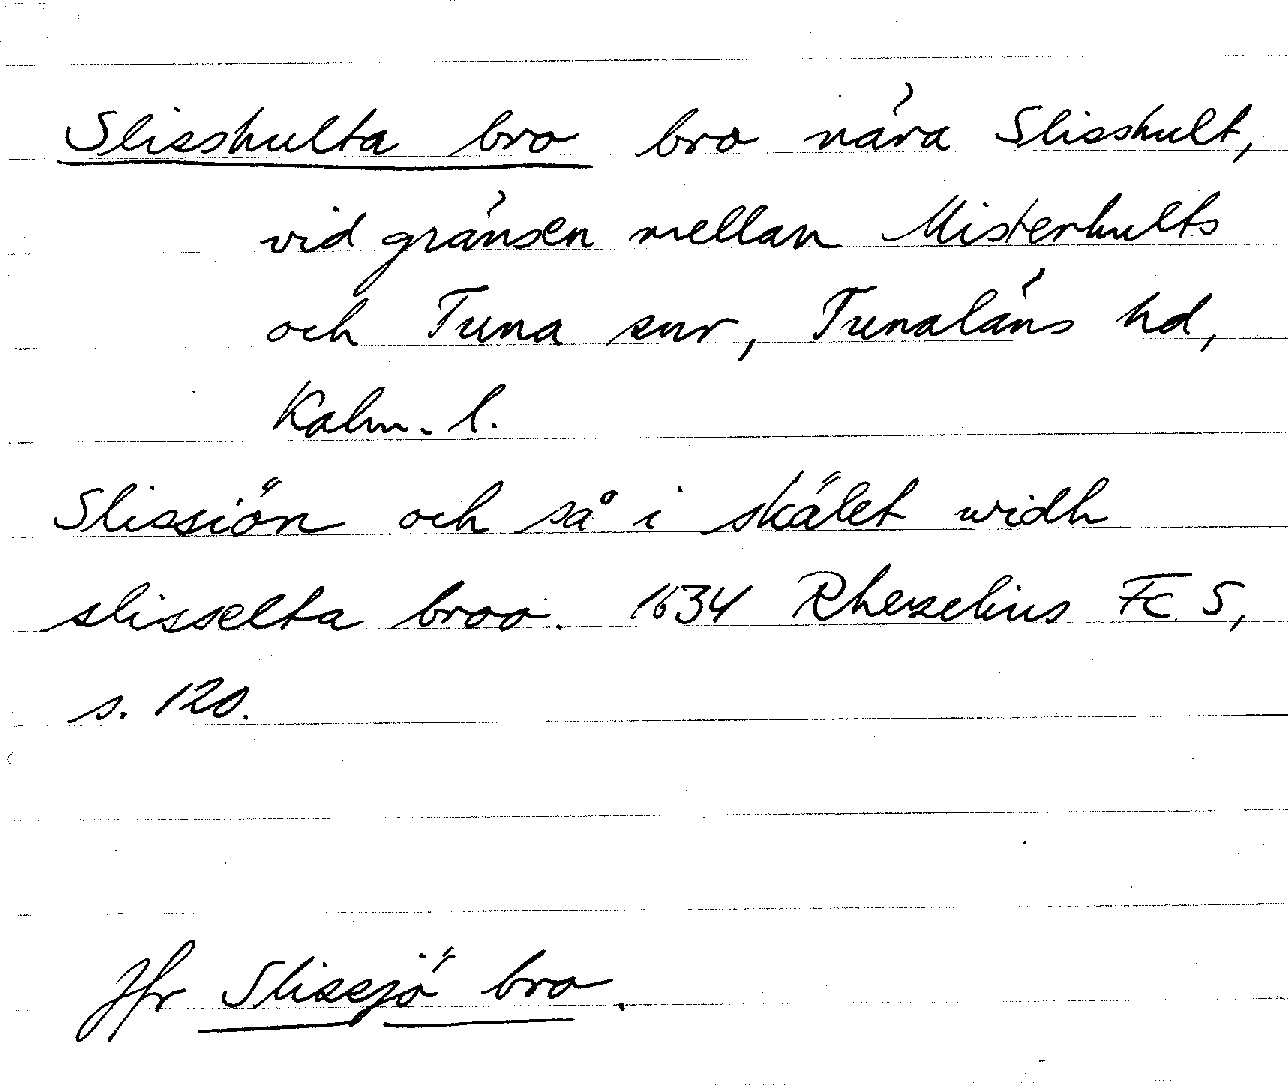 Slisshulta bro bro nära Slisshult,
vid gränsen mellan Misterhults
och Tuna snr, Tunaläns hd,
Kalm. l.
Slissiön och så i skälet widh
slisselta broo. 1634 Rhezelius Fc 5,
s. 120.
Jfr Slissjö bro.